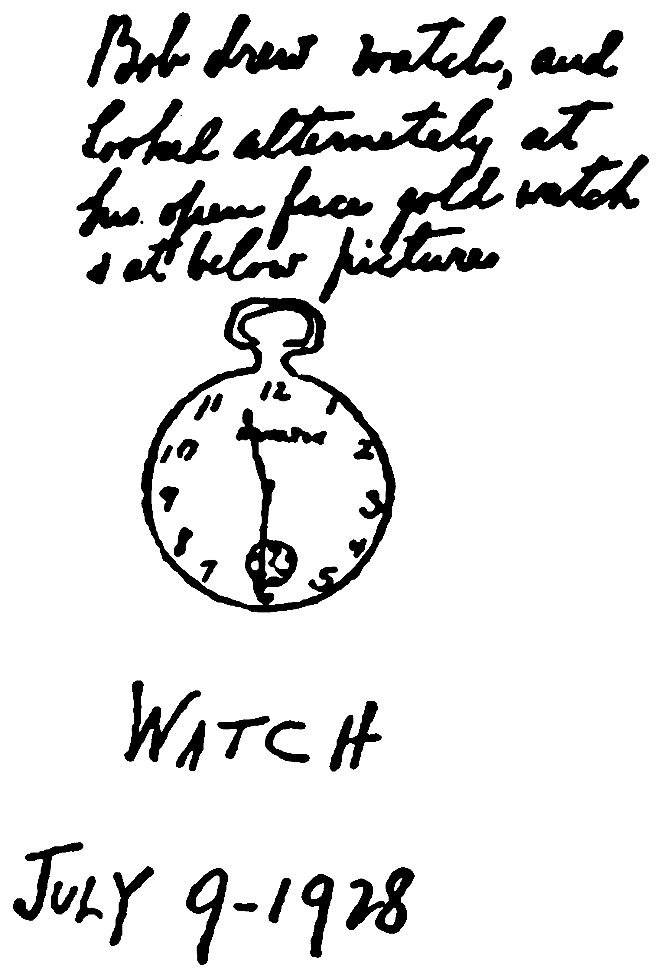 Bob drew watch, and
looked alternately at
his open face gold watch
& at below pictures
12
11 1
10 2
9 3
8 4
7 5
6
WATCH
JULY 9-1928